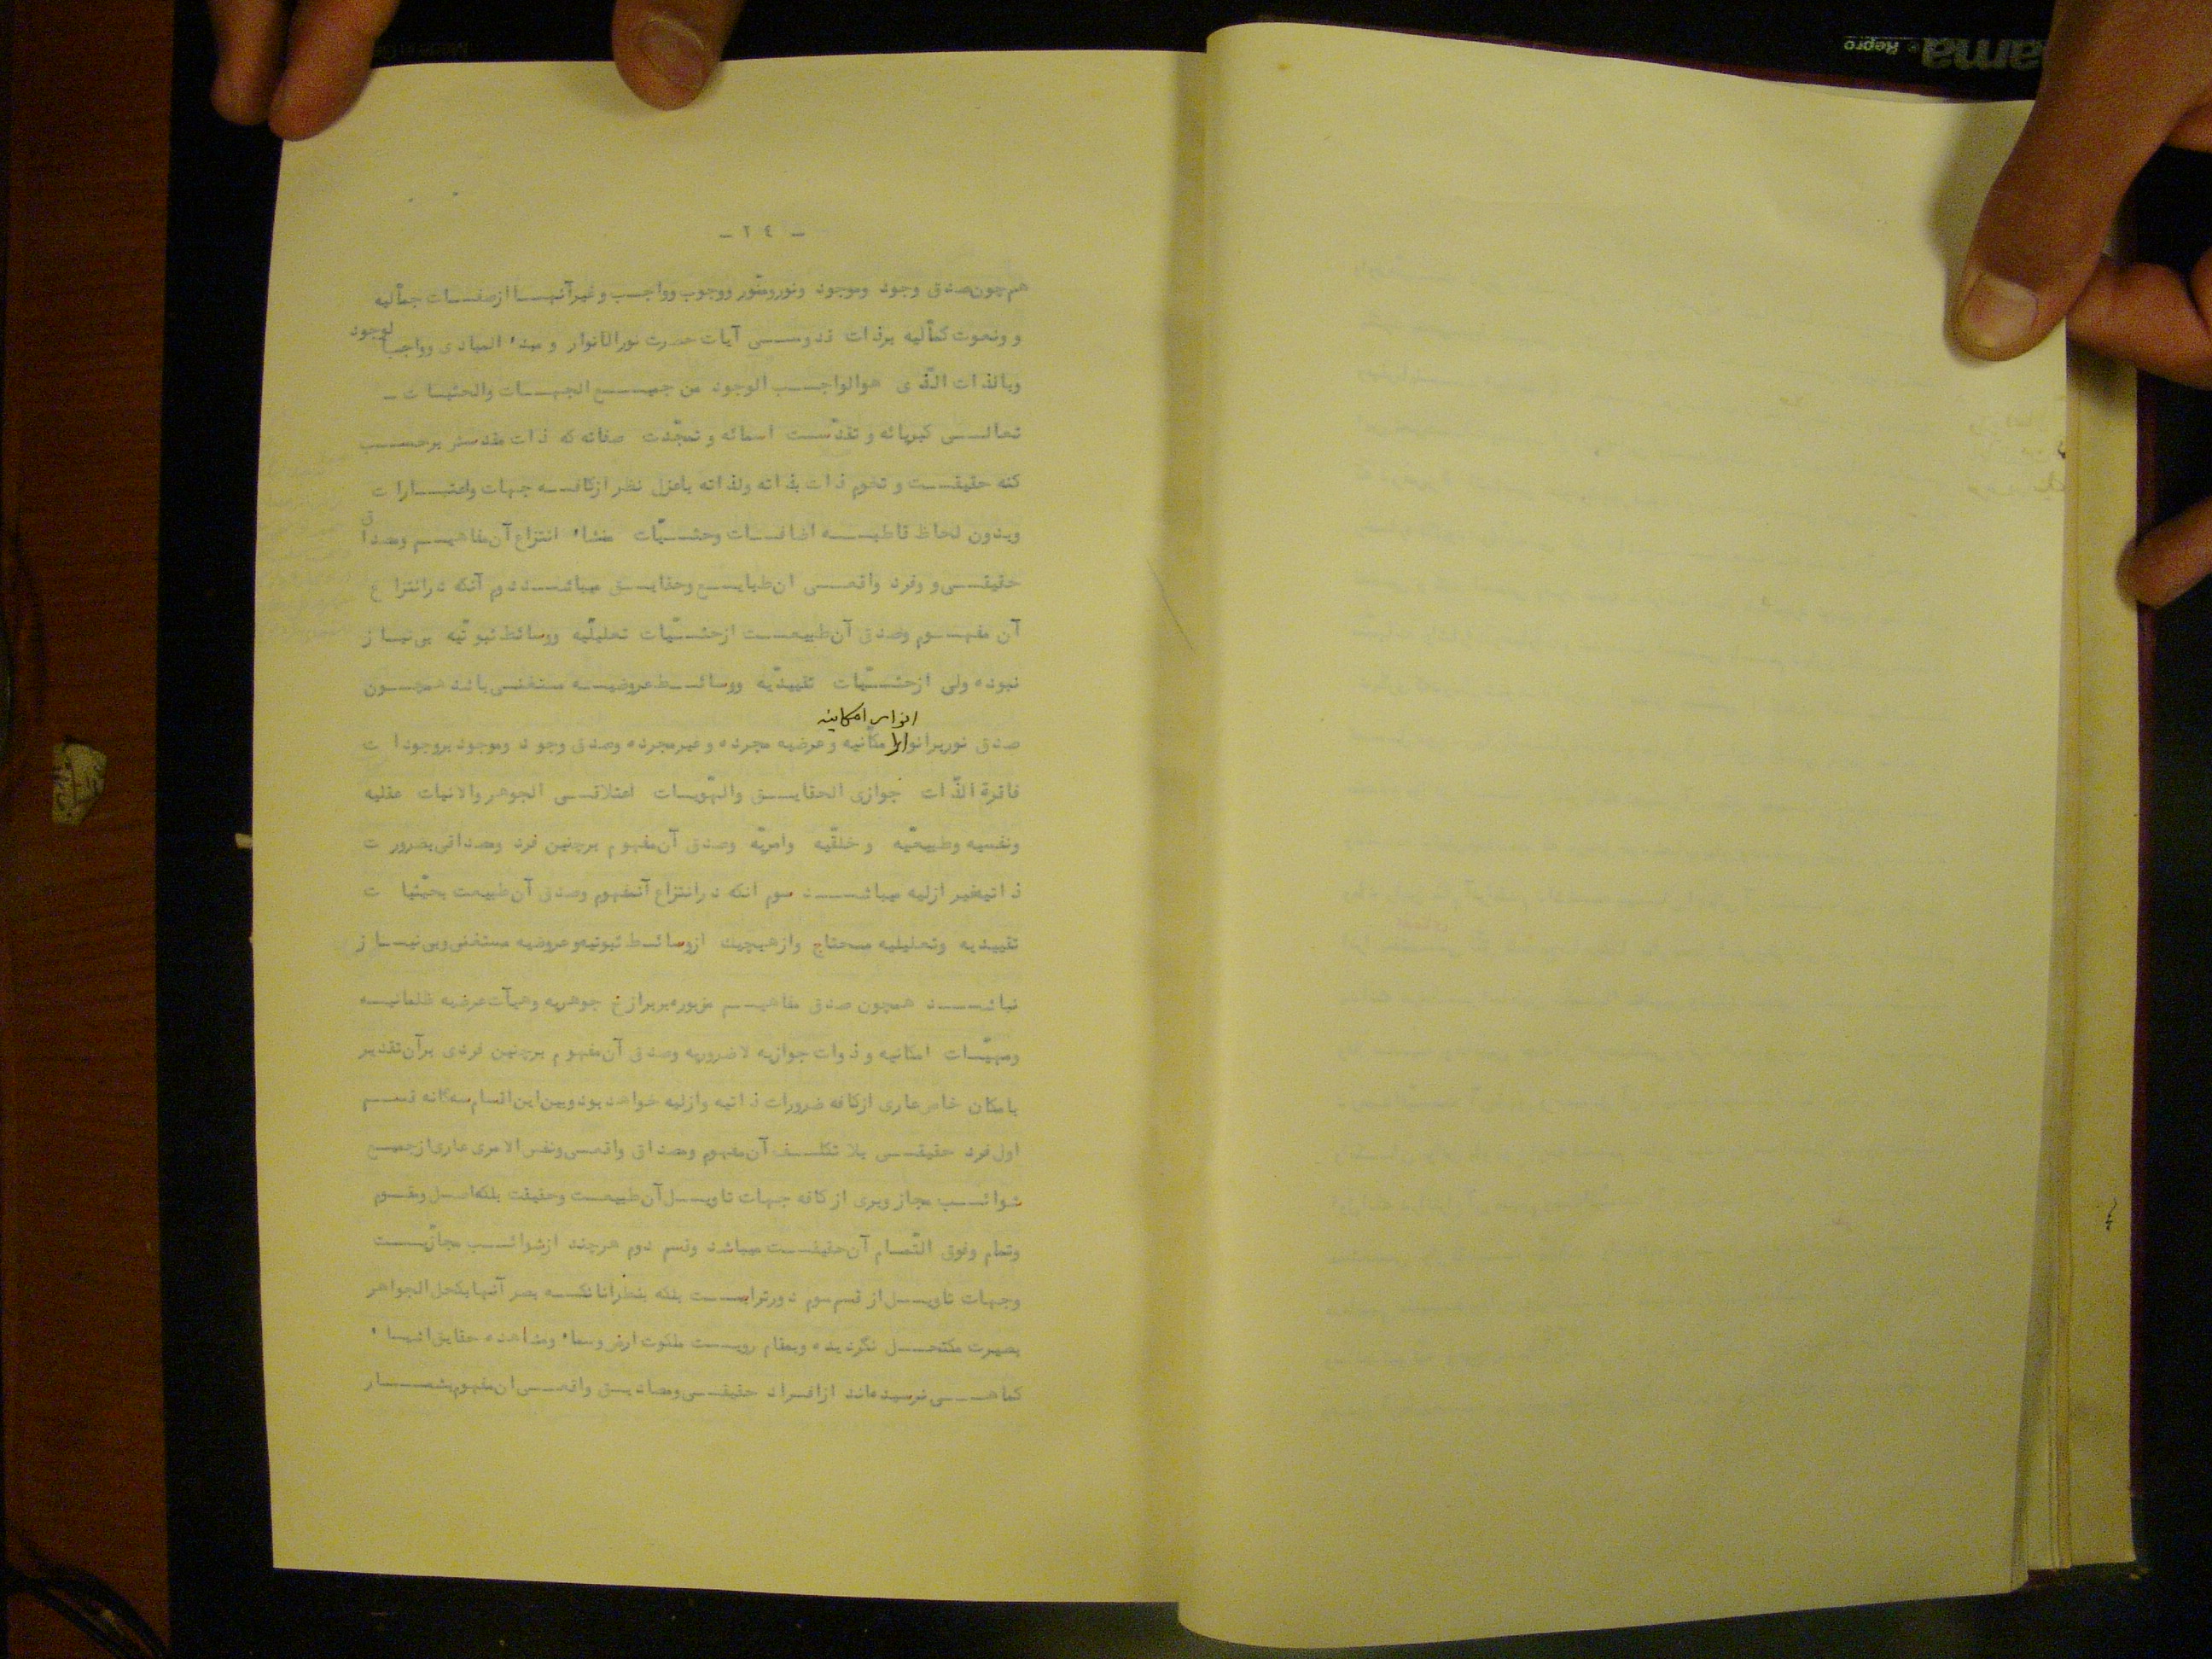 - ٢٤ -
هم چون صدق وجود وموجود ونورومنّور ووجوب وواجب وغیرآنها ازصفات جمآلیه
و ونعوت کمآلیه برذات قدوسی آیات حضرت نورالانوار و مبدء المبادی وواجب الوجود
وبالذات الّذی هوالواجب الوجود من جمیع الجهات والحثیات -
تعالی کبریائه و تقدّست اسمائه و تمجّدت صفاته که ذات مقدسش برحسب
کنه حقیقت و تخوم ذات بذاته ولذاته باعزل نظر ازکافه جهات واعتبارات
وبدون لحاظ قاطبه اضافات وحثیّات منشاء انتزاع آن مفاهیم ومصداق
حقیقی و وفرد واقعی ان طبایع وحقایق میباشد دوم آنکه درانتزاع
آن مفهوم وصدق آن طبیعت ازحثیّات تعلیلّیه ووسائط ثبوتّیه بی نیاز
نبوده ولی ازحثیّات تقییدّیه ووسائط عروضیه مستغنی باشد همچون
انوار امکانیه
صدق نوربرانوارا مکانیه وعرضیه مجرده وغیرمجرده وصدق وجود وموجود بروجودات
فاقرة الذّات جوازی الحقایق والهّویات اعتلاقی الجوهر والانیات عقلیه
ونفسیه وطبیعّیه و خلقّیه وامریّه وصدق آن مفهوم برچنین فرد ومصداقی بضرورت
ذاتیه غیر ازلیه میباشد سوم انکه درانتزاع آنمفهوم وصدق آن طبیعت بحیّثیات
تقییدیه وتعلیلیه محتاج وازهیچیک ازوسائط ثبوتیه وعروضیه مستغنی وبی نیاز
نباشد همچون صدق مفاهیم مزبوره بربرازخ جوهریه وهیآت عرضیه ظلمانیه
ومهیّات امکانیه و ذوات جوازیه لاضروریه وصدق آن مفهوم برچنین فردی برآن تقدیر
بامکان خاص عاری ازکافه ضرورات ذاتیه وازلیه خواهد بود وبین این اقسام سه گانه قسم
اول فرد حقیقی بلا تکلف آن مفهوم ومصداق واقعی ونفس الامری عاری ازجمیع
شوائب مجاز وبری از کافه جهات تاویل آن طبیعت وحقیقت بلکه اصل ومقوم
وتمام وفوق التّمام آن حقیقت میباشد وقسم دوم هرچند ازشوائب مجازیّت
وجهات تاویل از قسم سوم دورتراست بلکه بنظرانانکه بصر آنها بکحل الجواهر
بصیرت مکتحل نگردیده وبمقام رویت ملکوت ارض وسماء ومشاهده حقایق اشیاء
کماهی نرسیده اند ازافراد حقیقی ومصادیق واقعی ان مفهوم بشمار